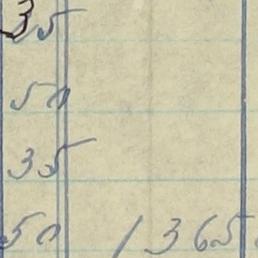 35
50
35
50 1365